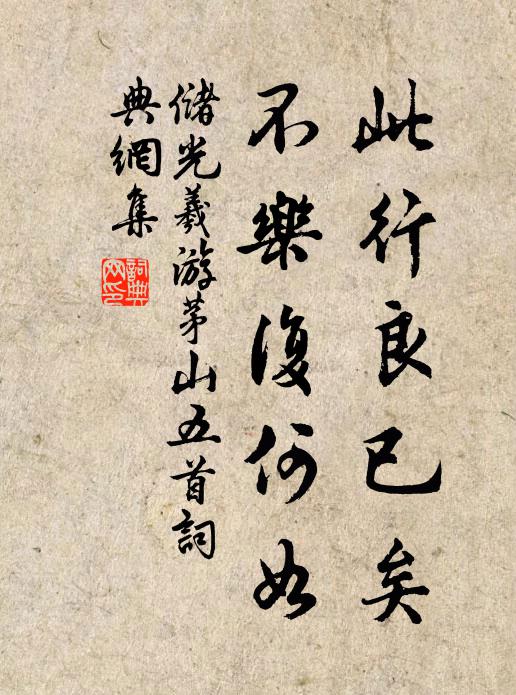 此行良已矣
不樂復何如
儲光羲游茅山五首詞
典網集
詞典
网印